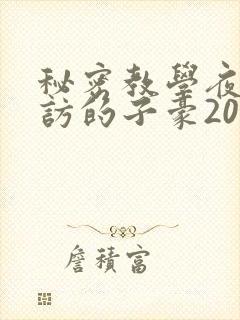 秘密教學夜
訪的子豪20
詹積富